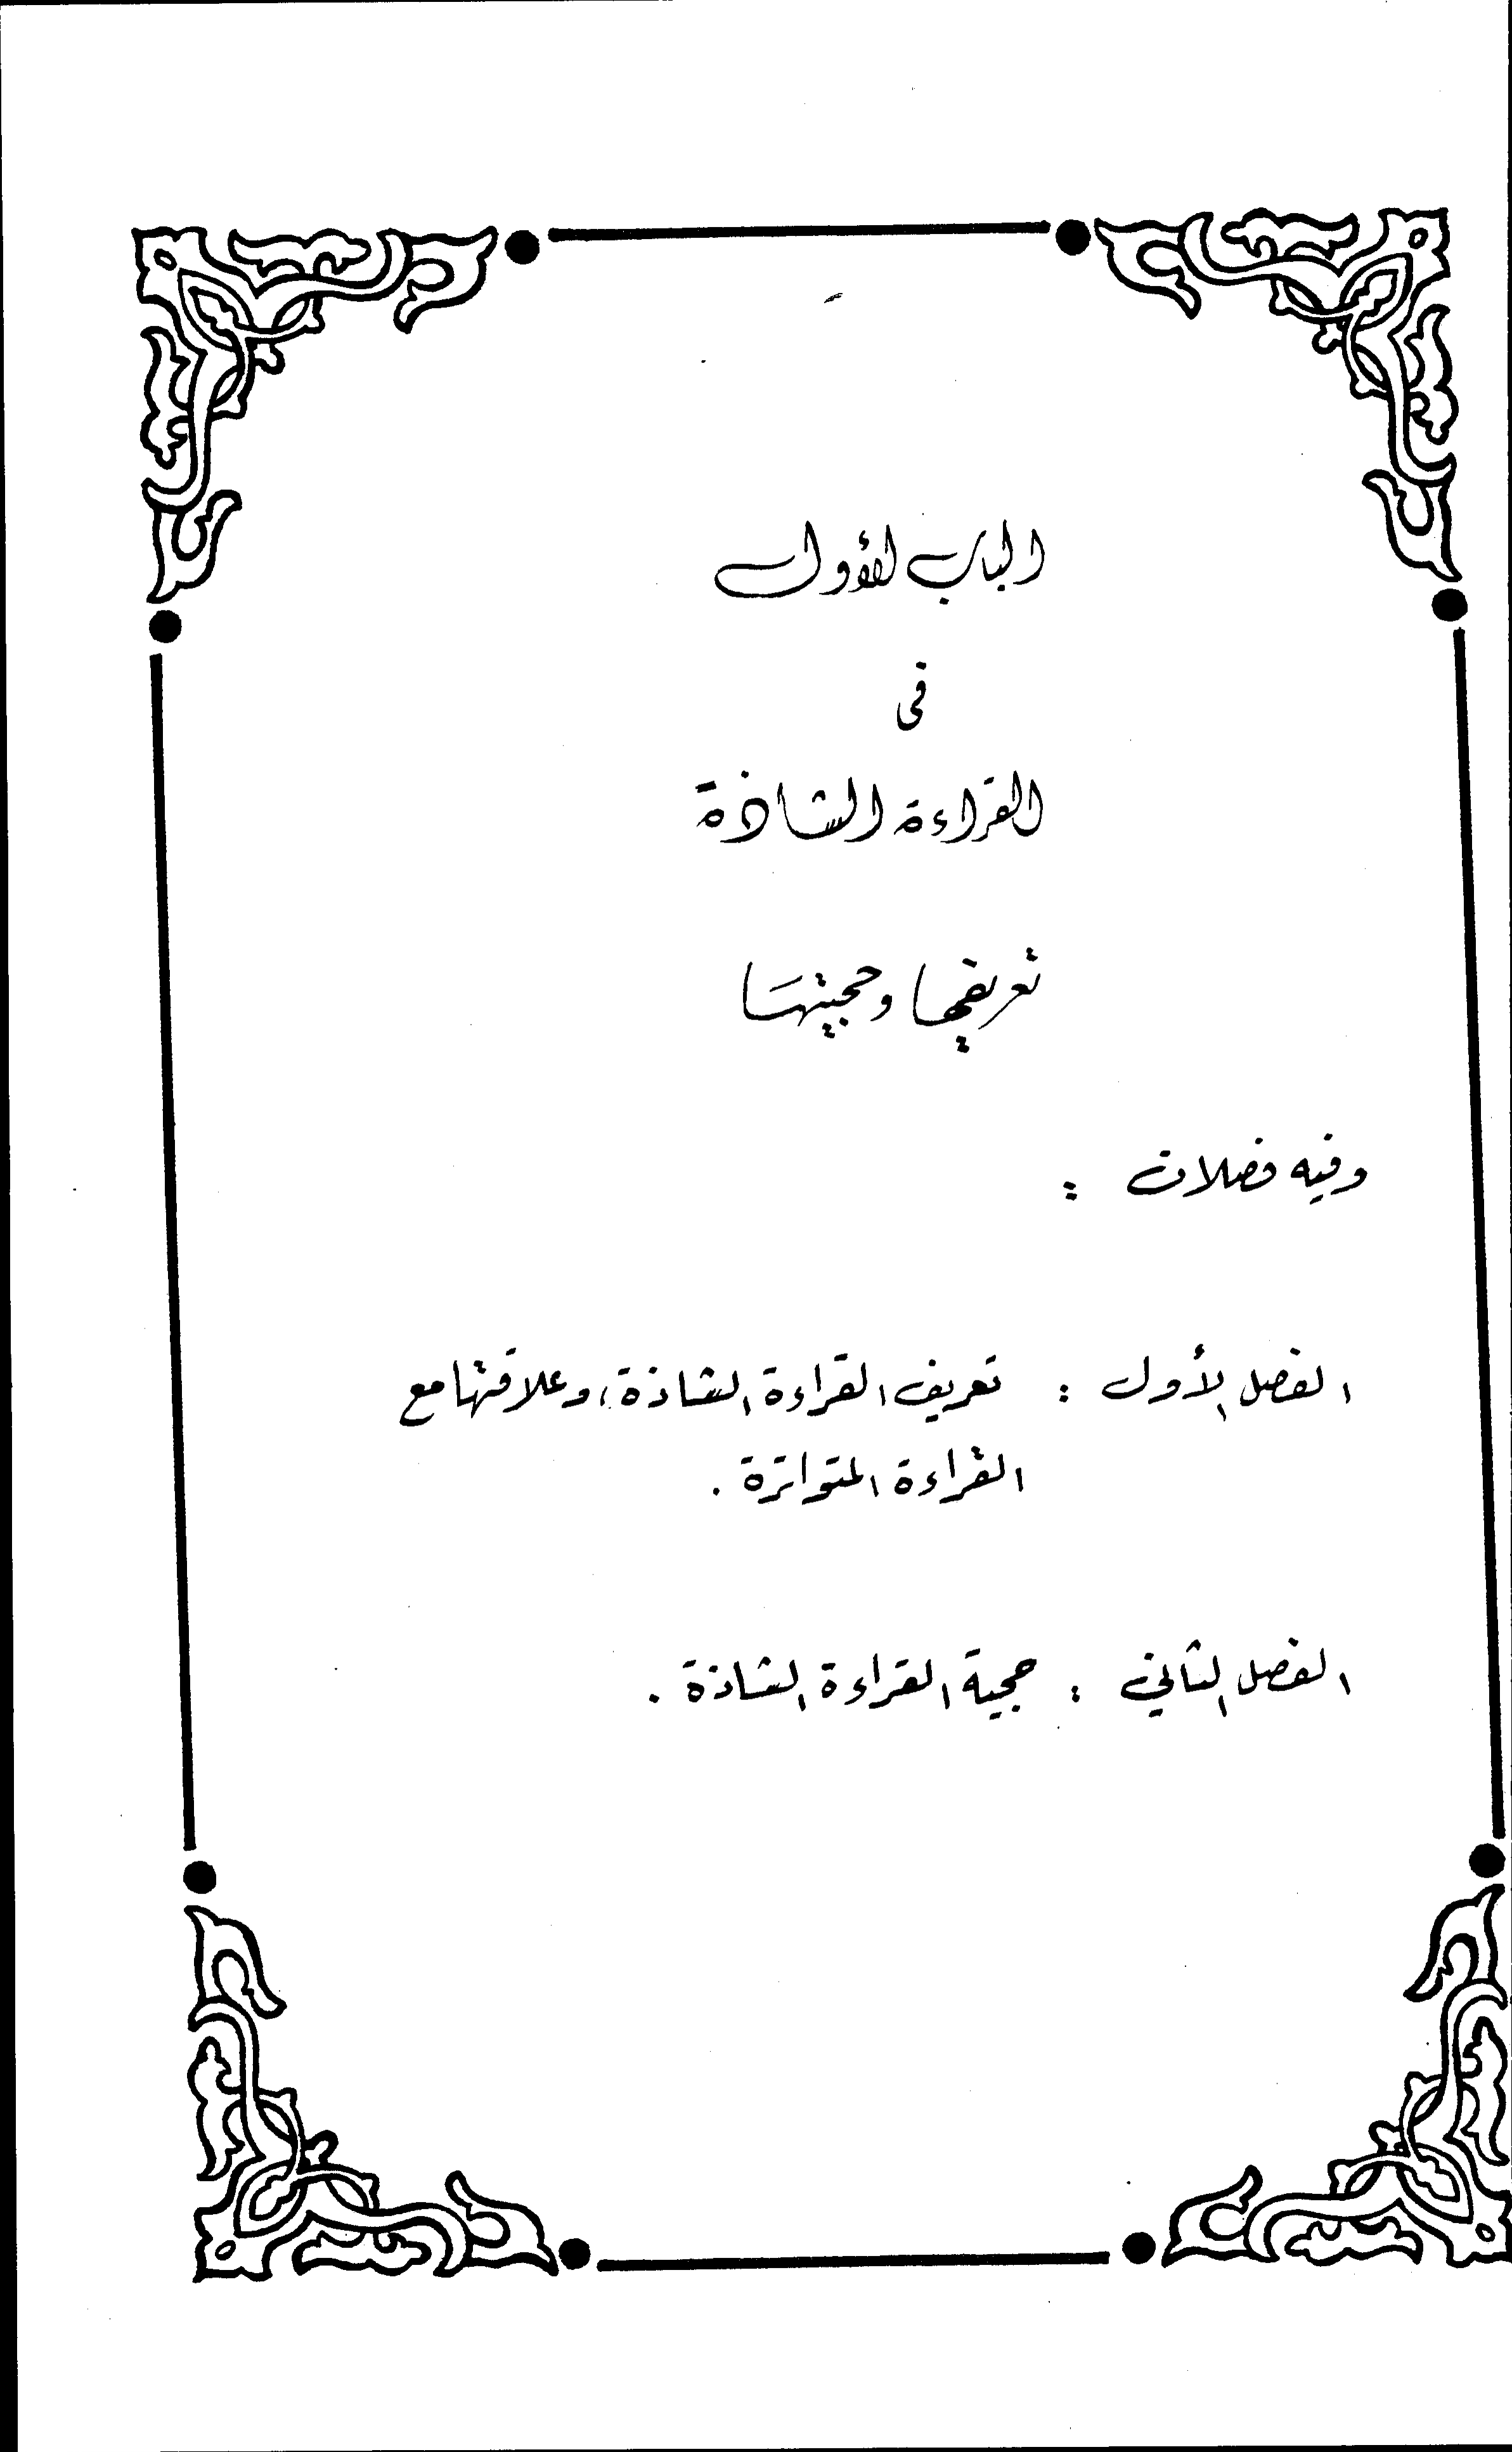 الباب الأول
فى
القراءة الشاذة
تعريفها وحجيتها
وفيه فصلان :
الفصل الأول : تعريف القراءة الشاذة، وعلاقتها مع
القراءة المتواترة .
الفصل الثاني : حجية القراءة الشاذة .